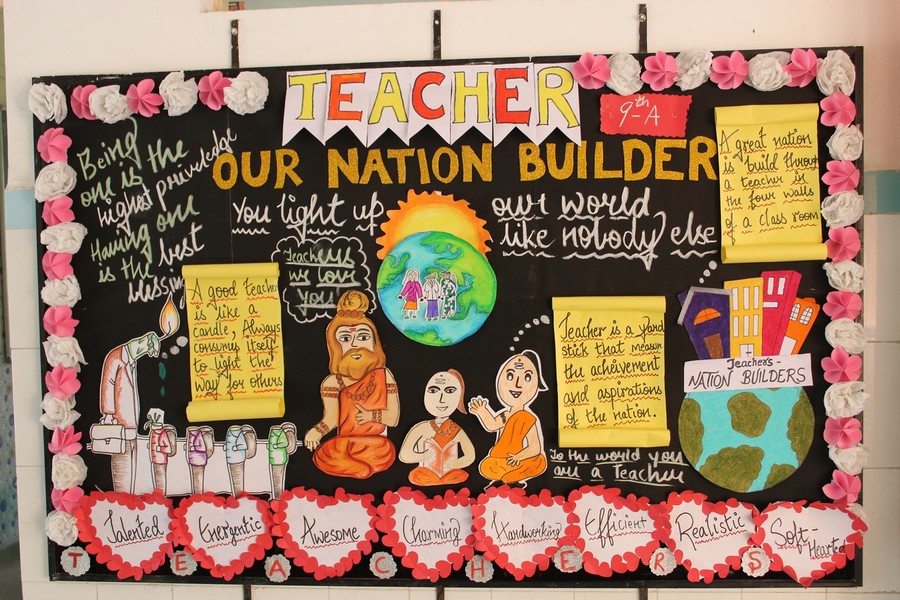 TEACHER
9th-A
OUR NATION BUILDER
Being
one is the
highest priveledge
Having one
is the best
blessing
You light up our world
like nobody else
Teachers
we love
you
A great nation
is build through
a teacher in
the four walls
of a class room
A good teacher
is like a
candle, Always
consumes itself
to light the
way for others
Teacher is a yard
stick that measure
the achivement
and aspirations
of the nation.
Teachers-
NATION BUILDERS
To the world you
are a Teacher
Talented
Energentic
Awesome
Charming
Handworking
Efficient
Realistic
Soft-
Hearted
T E A C H E R S